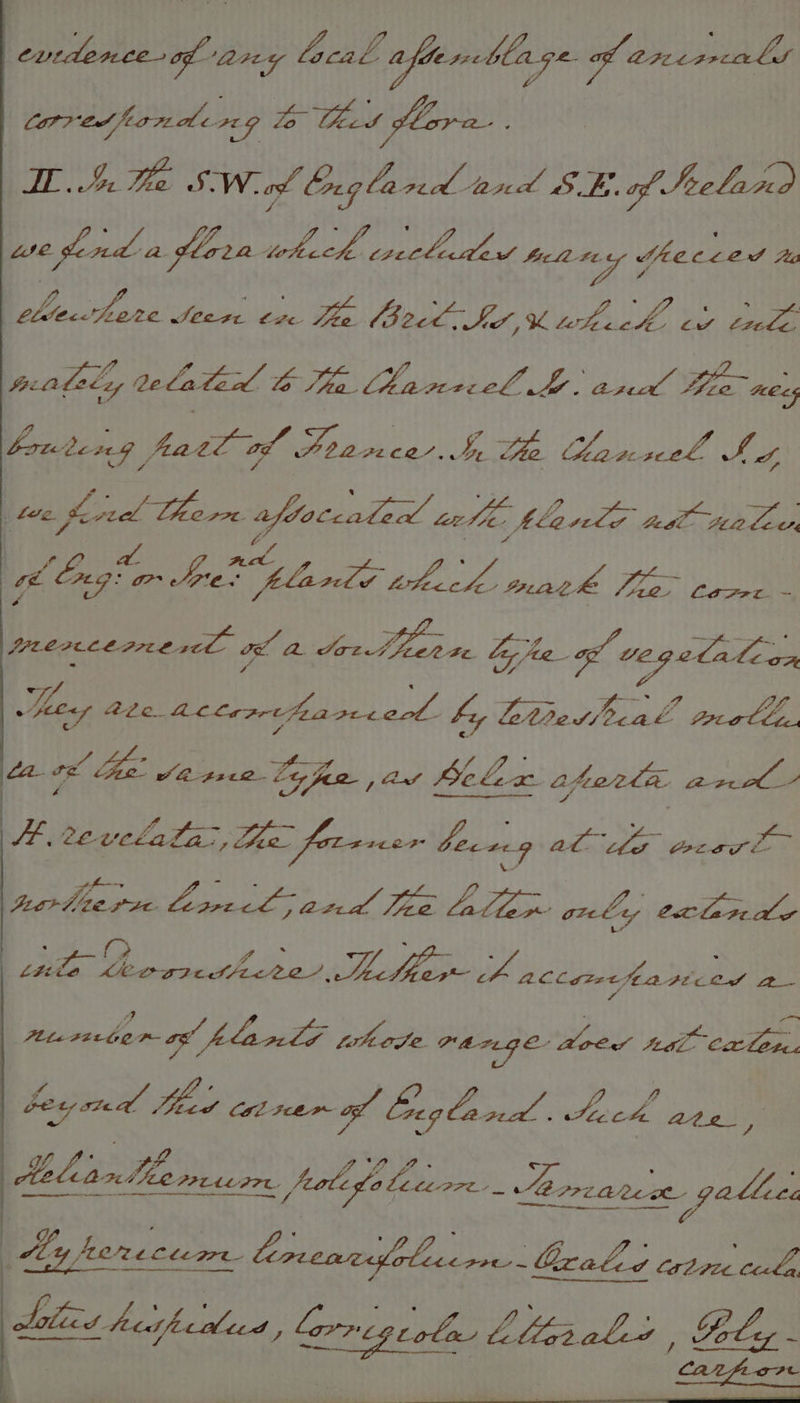 evidence of any local assemblage of animals
corresponding to this flora.
II. In the S.W. of England and S.E. of Ireland
we find a flora which includes many species no
elsewhere seen in the Brit. Is, & which is inti
mately related to the Channel Is. and the neig
bouring part of France. In the Channel Is,
we find them associated with plants not nativ
of Eng:d or Ire:nd plants which mark the com-
mencement of a southern type of vegetation
They are accompanied by terrestrial mollu
ca of the same type, as Helix aperta and
H. revelata, the former being at its most
northern limit, and the latter only extends
into Cornwall
 Thither it accompanies a
number of plants whose range does not exten
beyond this corner of England. Such are,
Helianthemum polifolium - Tamarix gallica
Hypericum linearifolium - Oxalis cornicula
Lotus hispidus, Corrigiola littoralis, Poly-
carpon